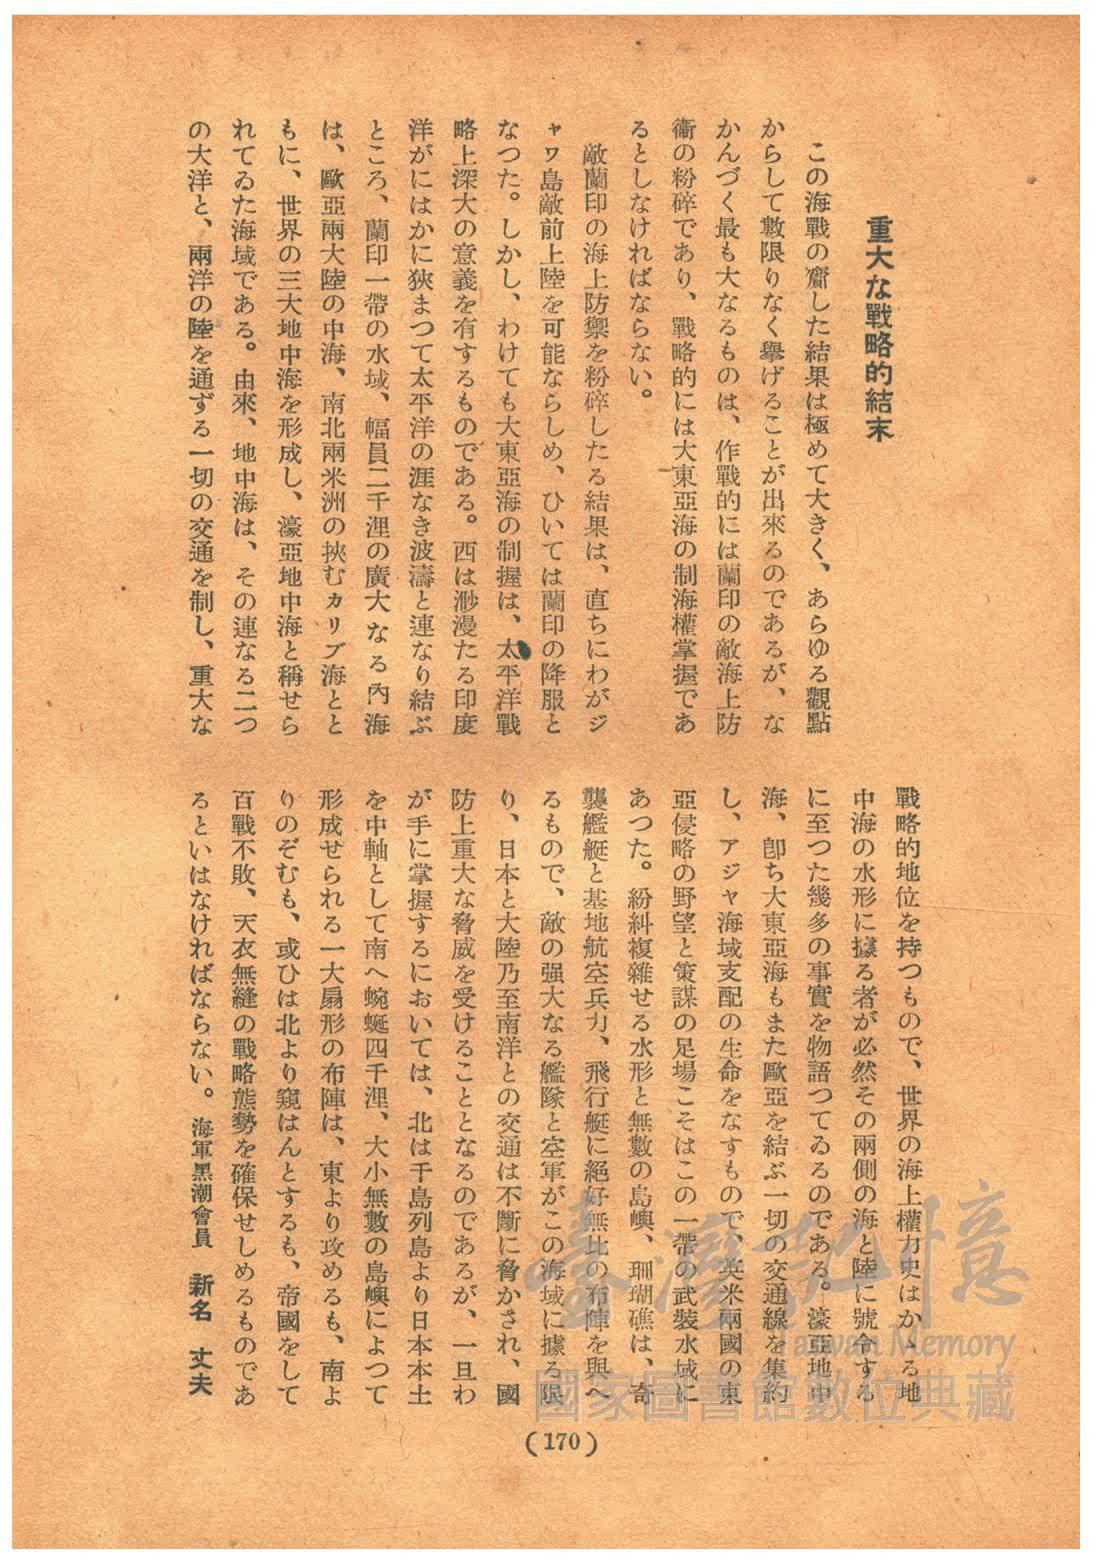 重大な戰略的結末
この海戰の齎した結果は極めて大きく、あらゆる觀點
からして數限りなく擧げることが出來るのであるが、な
かんづく最も大なるものは、作戰的には蘭印の敵海上防
衞の粉碎であり、戰略的には大東亞海の制海權掌握であ
るとしなければならない。
敵蘭印の海上防禦を粉碎したる結果は、直ちにわがジ
ャワ島敵前上陸を可能ならしめ、ひいては蘭印の降服と
なつた。しかし、わけても大東亞海の制握は、太平洋戰
略上深大の意義を有するものである。西は渺漫たる印度
洋がにはかに狹まつて太平洋の涯なき波濤と連なり結ぶ
ところ、蘭印一帶の水域、幅員二千浬の廣大なる內海
は、歐亞兩大陸の中海、南北兩米洲の挾むカリブ海とと
もに、世界の三大地中海を形成し、濠亞地中海と稱せら
れてゐた海域である。由來、地中海は、その連なる二つ
の大洋と、兩洋の陸を通ずる一切の交通を制し、重大な
戰略的地位を持つもので、世界の海上權力史はかゝる地
中海の水形に據る者が必然その兩側の海と陸に號令する
に至つた幾多の事實を物語つてゐるのである。濠亞地中
海、卽ち大東亞海もまた歐亞を結ぶ一切の交通線を集約
し、アジヤ海域支配の生命をなすもので、英米兩國の東
亞侵略の野望と策謀の足場こそはこの一帶の武裝水域に
あつた。紛糾複雜せる水形と無數の島嶼、珊瑚礁は、奇
襲艦艇と基地航空兵力、飛行艇に絕好無比の布陣を與へ
るもので、敵の强大なる艦隊と空軍がこの海域に據る限
り、日本と大陸乃至南洋との交通は不斷に脅かされ、國
防上重大な脅威を受けることとなるのであるが、一旦わ
が手に掌握するにおいては、北は千島列島より日本本土
を中軸として南へ蜿蜒四千浬、大小無數の島嶼によつて
形成せられる一大扇形の布陣は、東より攻めるも、南よ
りのぞむも、或ひは北より窺はんとするも、帝國をして
百戰不敗、天衣無縫の戰略態勢を確保せしめるものであ
るといはなければならない。 海軍黑潮會員 新名 丈夫
(170)
臺灣記憶
Taiwan Memory
國家圖書館數位典藏